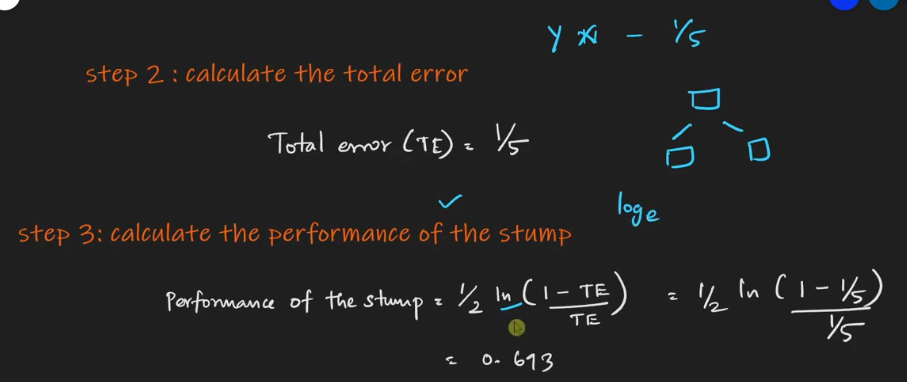 y ✗ - 1/5
step 2 : calculate the total error
Total error (TE) = 1/5
loge
step 3: calculate the performance of the stump
Performance of the stump = 1/2 ln (1 - TE / TE) = 1/2 ln (1 - 1/5 / 1/5)
= 0.693